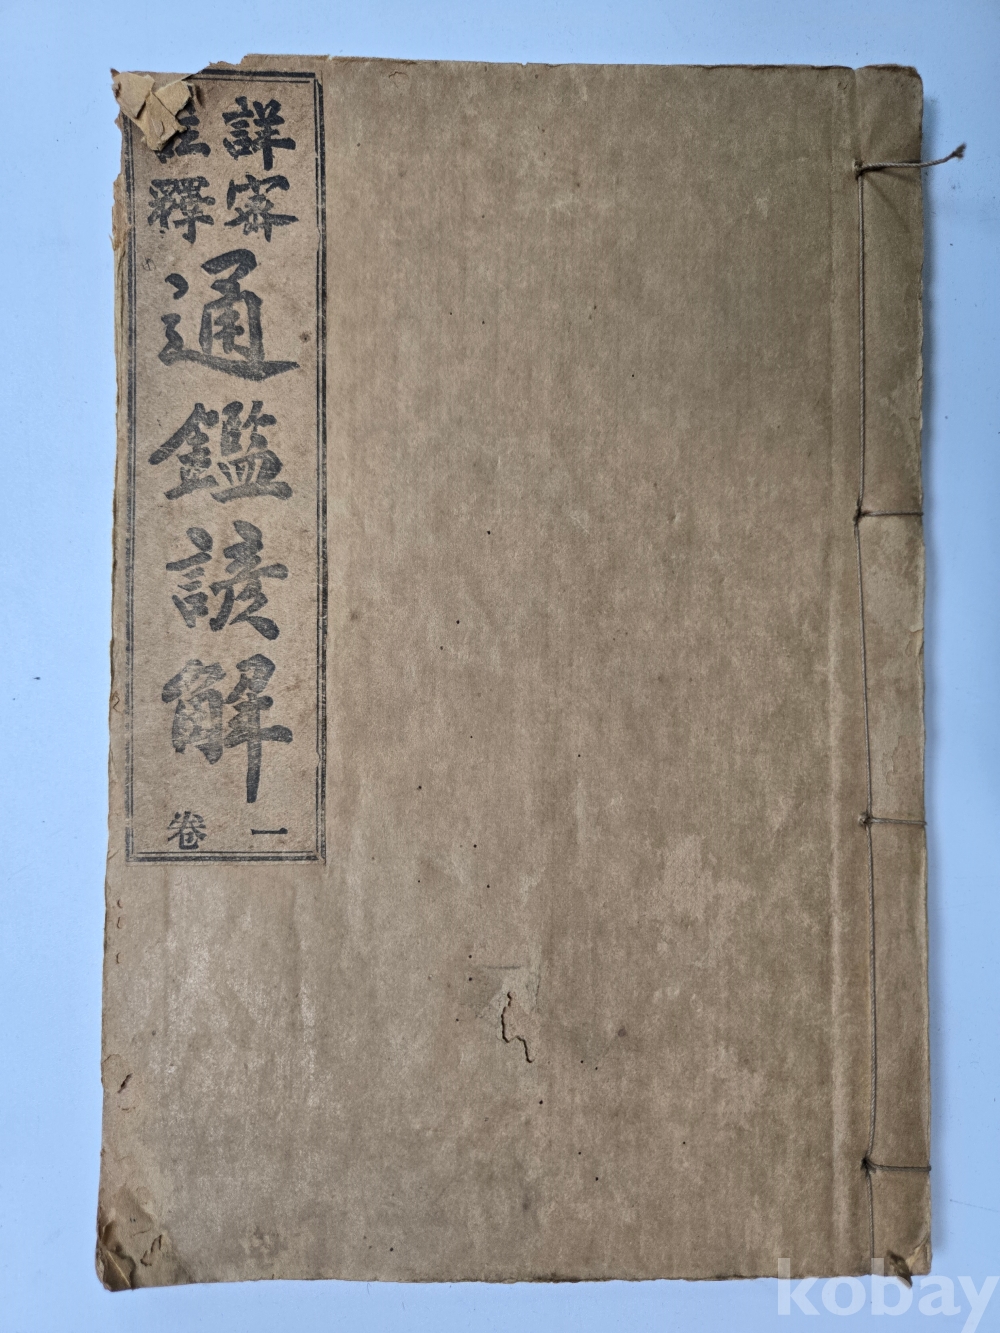 詳密
註釋
通鑑諺解
卷一
kobay